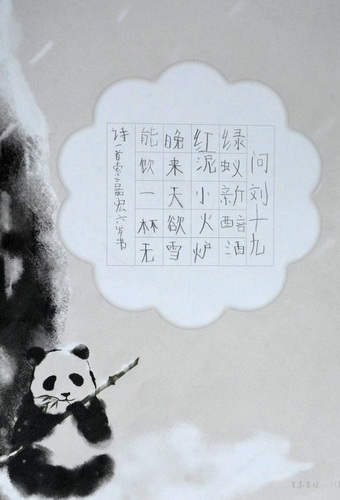 问刘十九
绿蚁新醅酒
红泥小火炉
晚来天欲雪
能饮一杯无
诗一首 六岁书